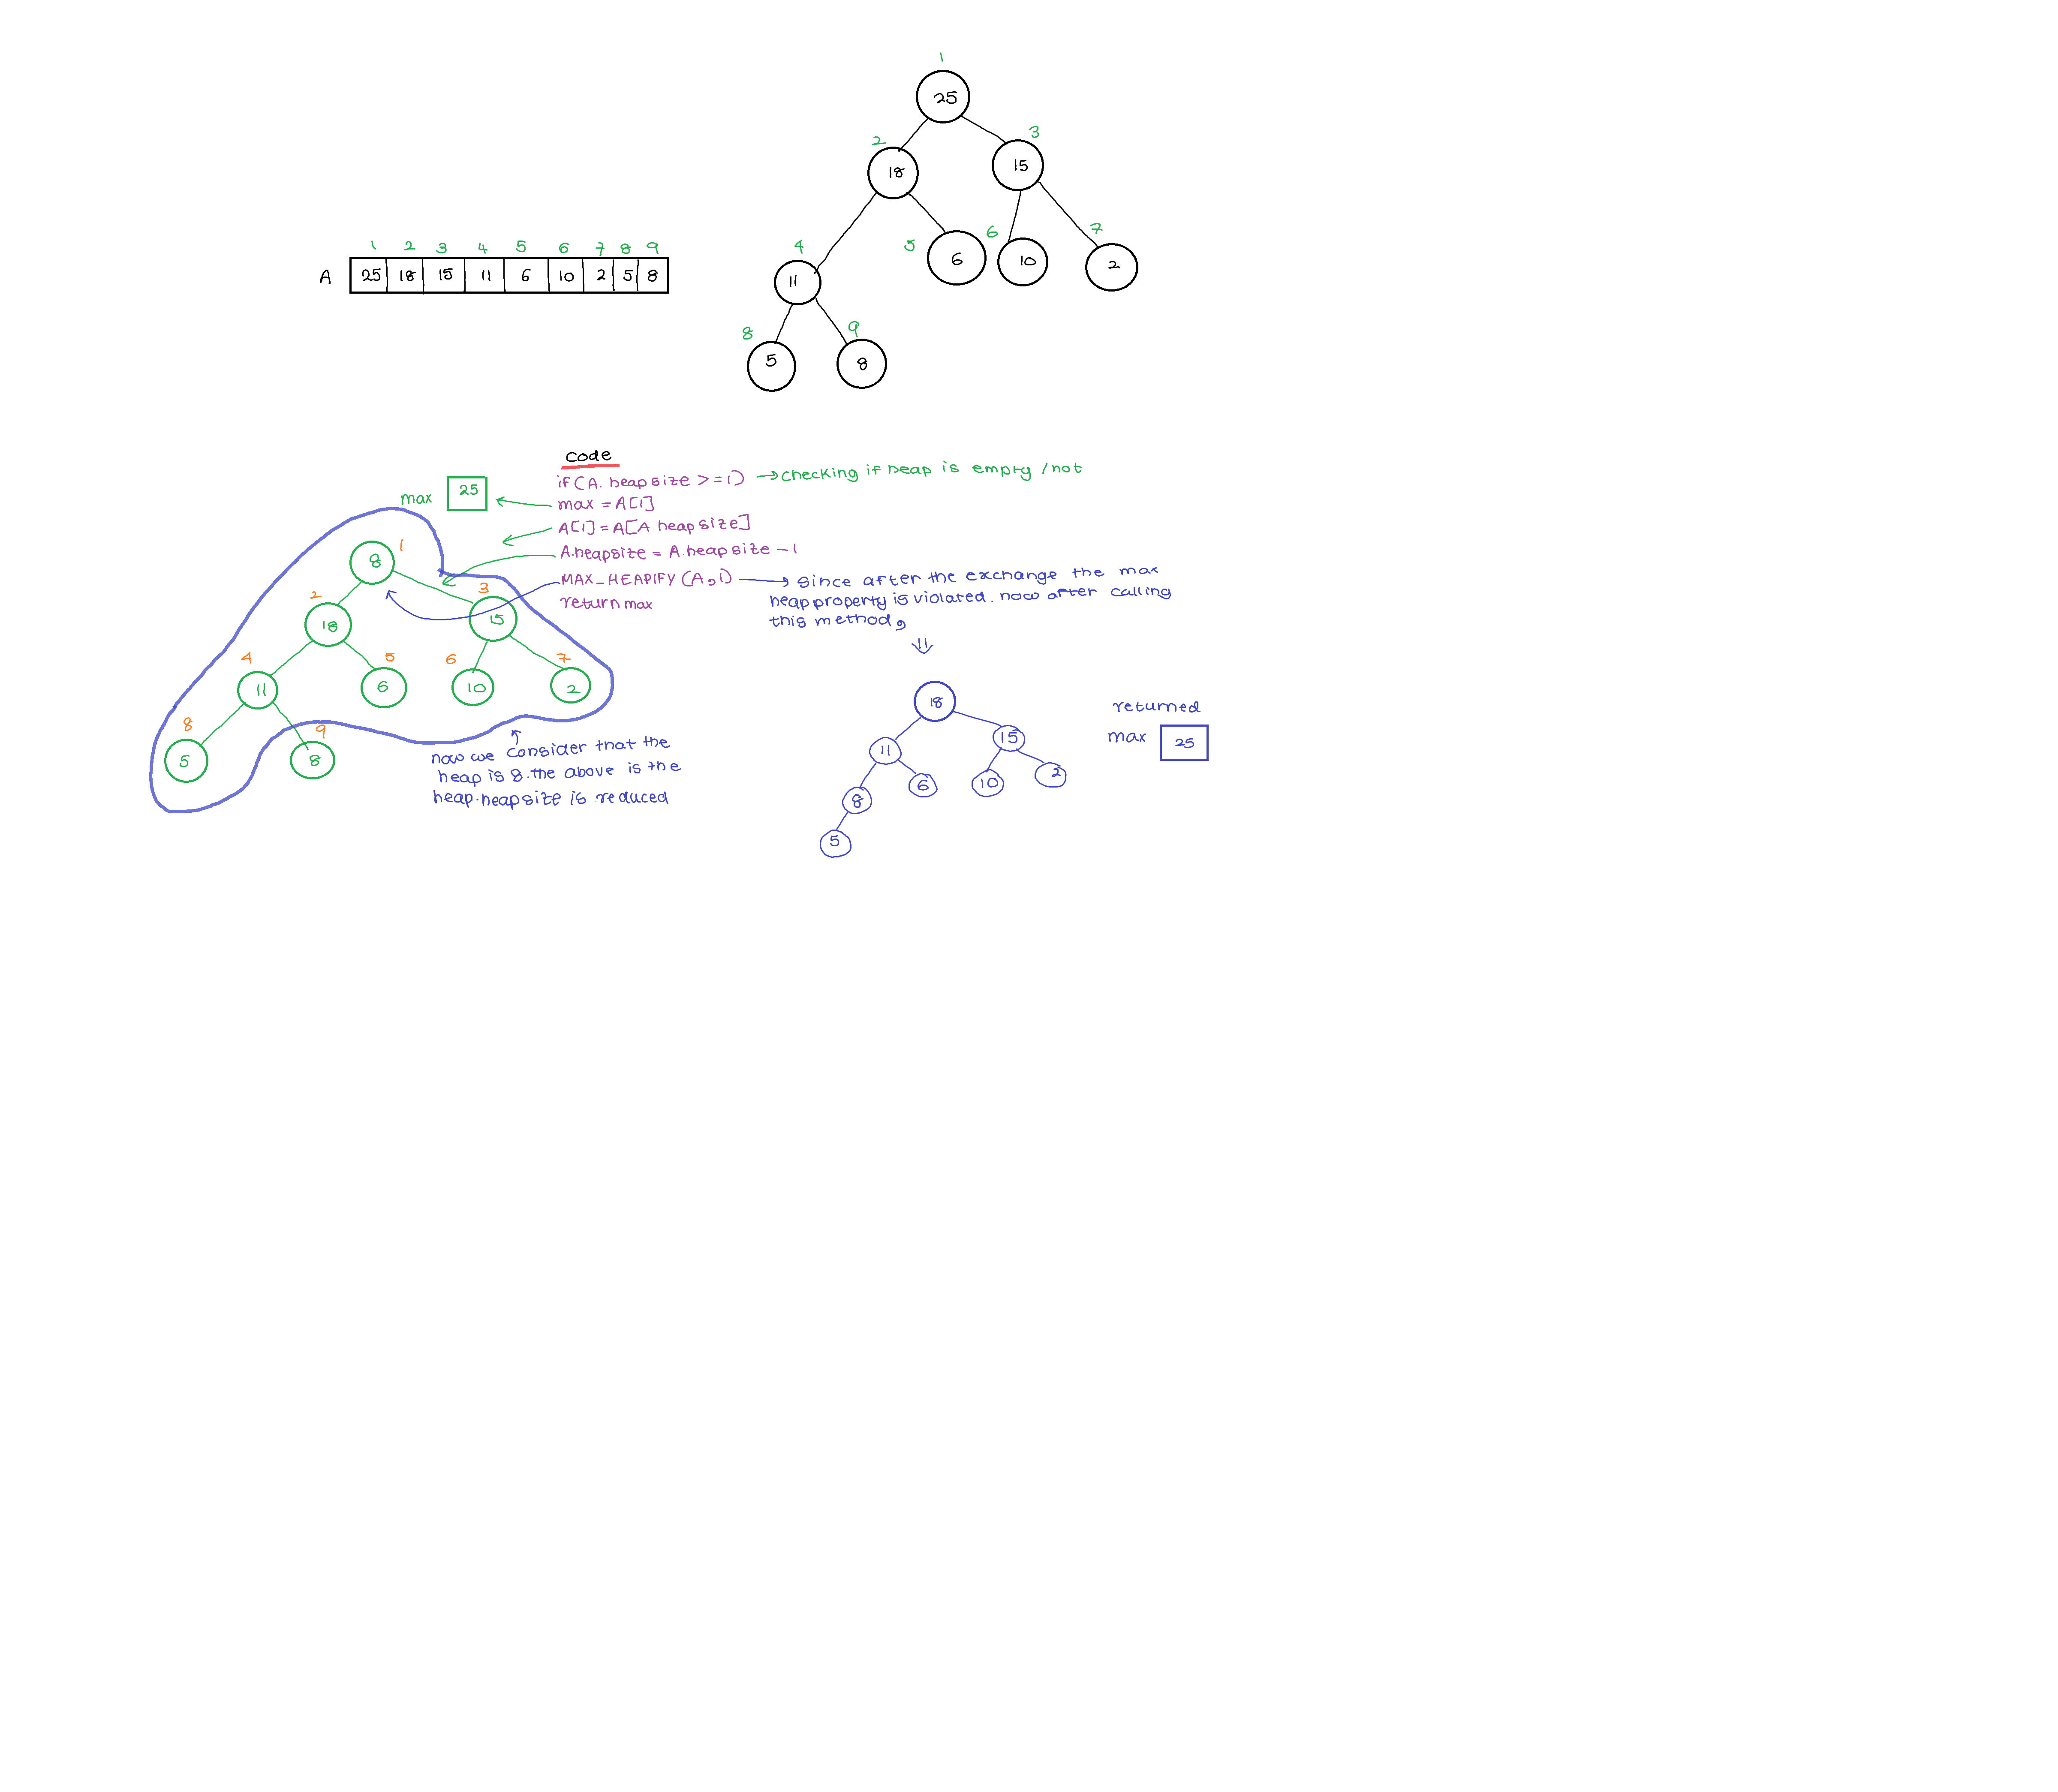 1
25
2
3
18
15
4
5
6
7
11
6
10
2
8
9
5
8
1 2 3 4 5 6 7 8 9
A 25 18 15 11 6 10 2 5 8
code
if (A. heapsize >=1) → checking if heap is empty /not
max = A[1]
A[1] = A[A.heapsize]
A.heapsize = A heapsize -1
MAX_HEAPIFY (A,1) → since after the exchange the max
heap property is violated. now after calling
this method,
return max
max 25
8 1
2
3
18
15
4
5
6
7
11
6
10
2
8
9
5
8
now we consider that the
heap is 8. the above is the
heap.heapsize is reduced
18
11
15
8
6
10
2
5
returned
max 25